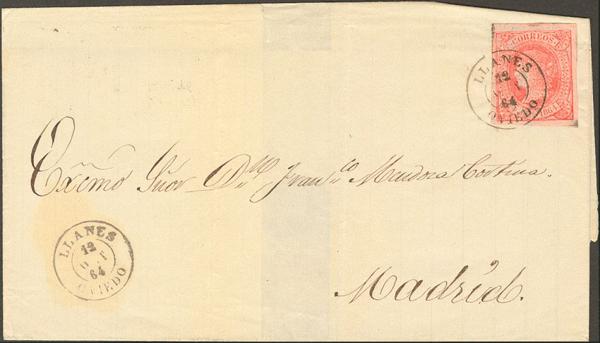 CORREOS
LLANES
12
64
OVIEDO
Exc͠mo Señor D.ⁿ Fran.co Mendoza Cortina.
LLANES
12
64
OVIEDO
Madrid.